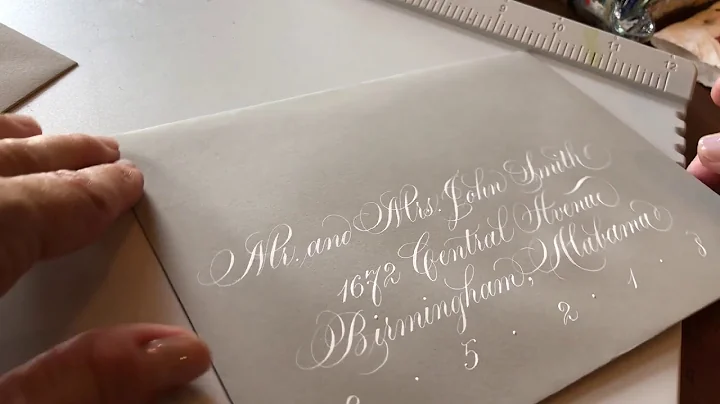 9 10 11 12
Mr. and Mrs. John Smith
1672 Central Avenue
Birmingham, Alabama
5 · 2 · 1 · 3